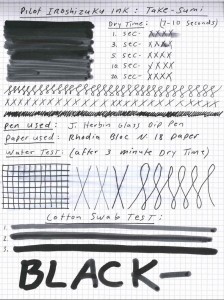 Pilot Iroshizuku Ink: Take-Sumi
Dry Time: (7-10 Seconds)
1. sec- XXXX
3. sec- XXXX
5. sec- XXXX
10. sec- XXXX
20. sec- XXXX
XXXXXXXXXXXXXXXXXXXXXXXX
Pen used: J. Herbin Glass Dip Pen
Paper used: Rhodia Bloc N 18 Paper
Water Test: (after 3 minute Dry Time)
Cotton Swab Test:
1.
2.
3.
BLACK-